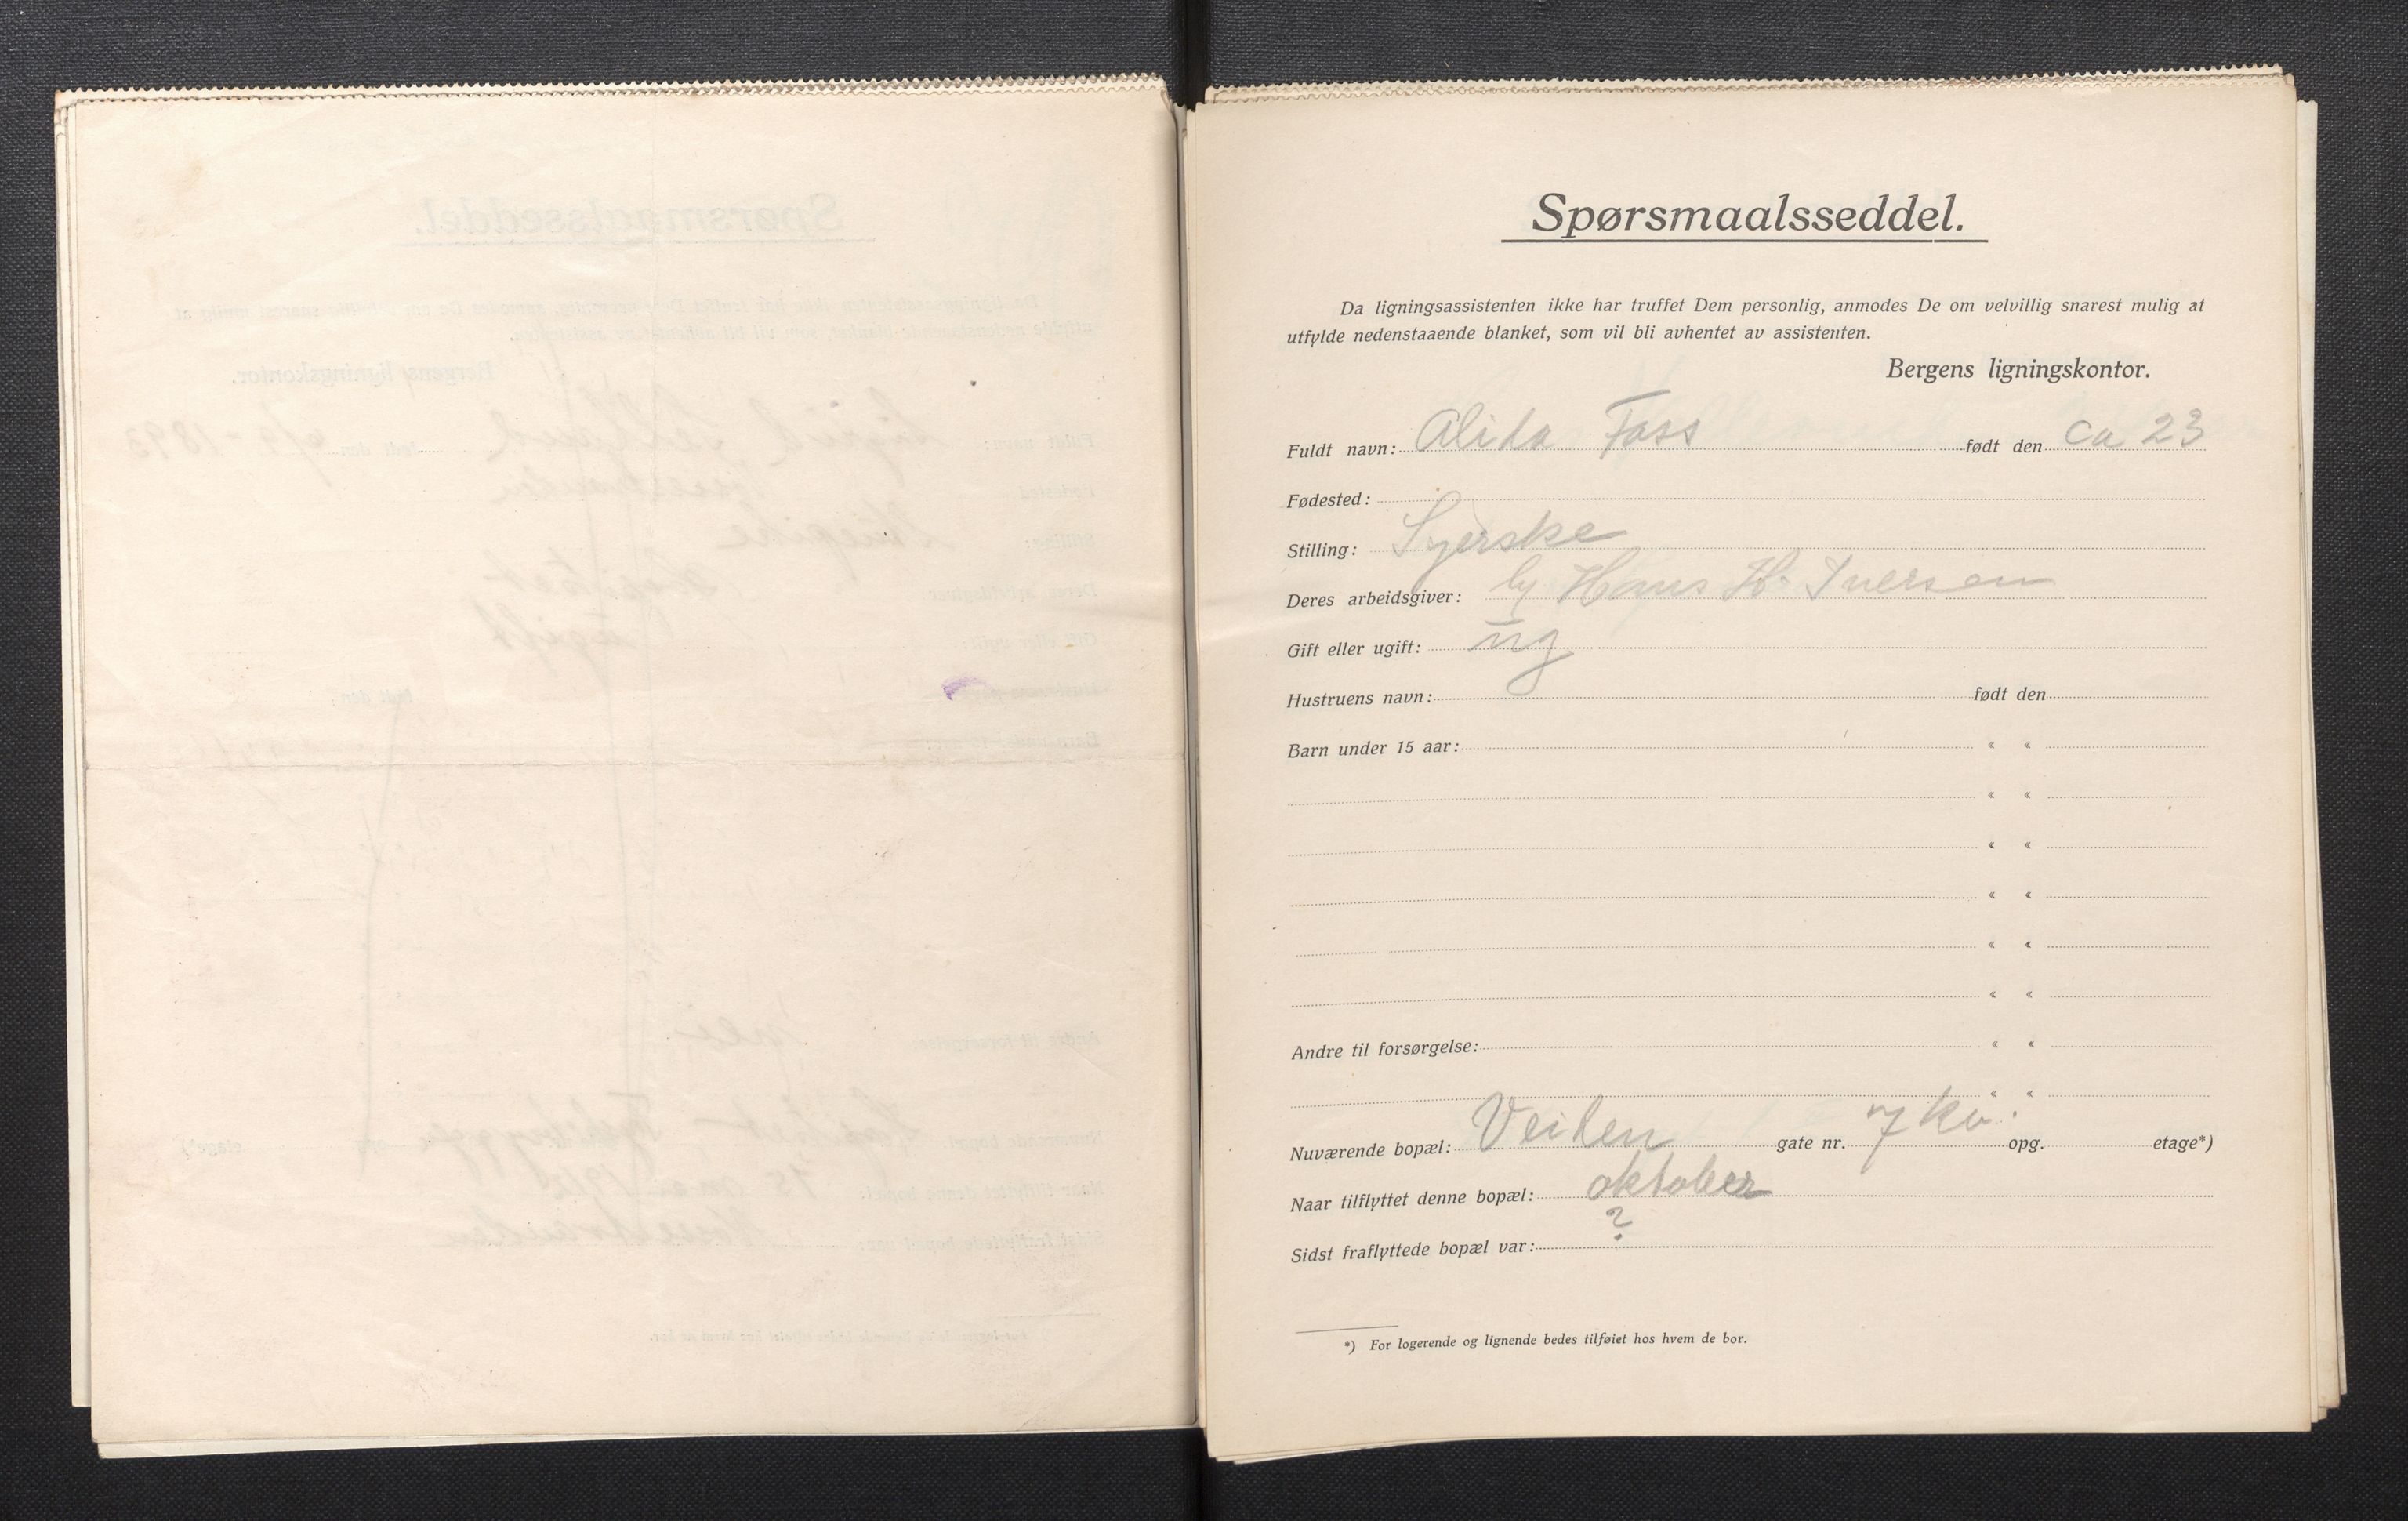 Spørsmaalsseddel.
Da ligningsassistenten ikke har truffet Dem personlig, anmodes De om velvillig snarest mulig at
utfylde nedenstaaende blanket, som vil bli avhentet av assistenten.
Bergens ligningskontor.
Fuldt navn: Alida Fass født den ca 23
Fødested:
Stilling: Syerske
Deres arbeidsgiver: Hans H. Iversen
Gift eller ugift: ug
Hustruens navn: født den
Barn under 15 aar: « «
« «
« «
« «
« «
« «
Andre til forsørgelse: « «
« «
Nuværende bopæl: Veiten gate nr. 7 kv. opg. etage*)
Naar tilflyttet denne bopæl: oktober
Sidst fraflyttede bopæl var: ?
*) For logerende og lignende bedes tilføiet hos hvem de bor.